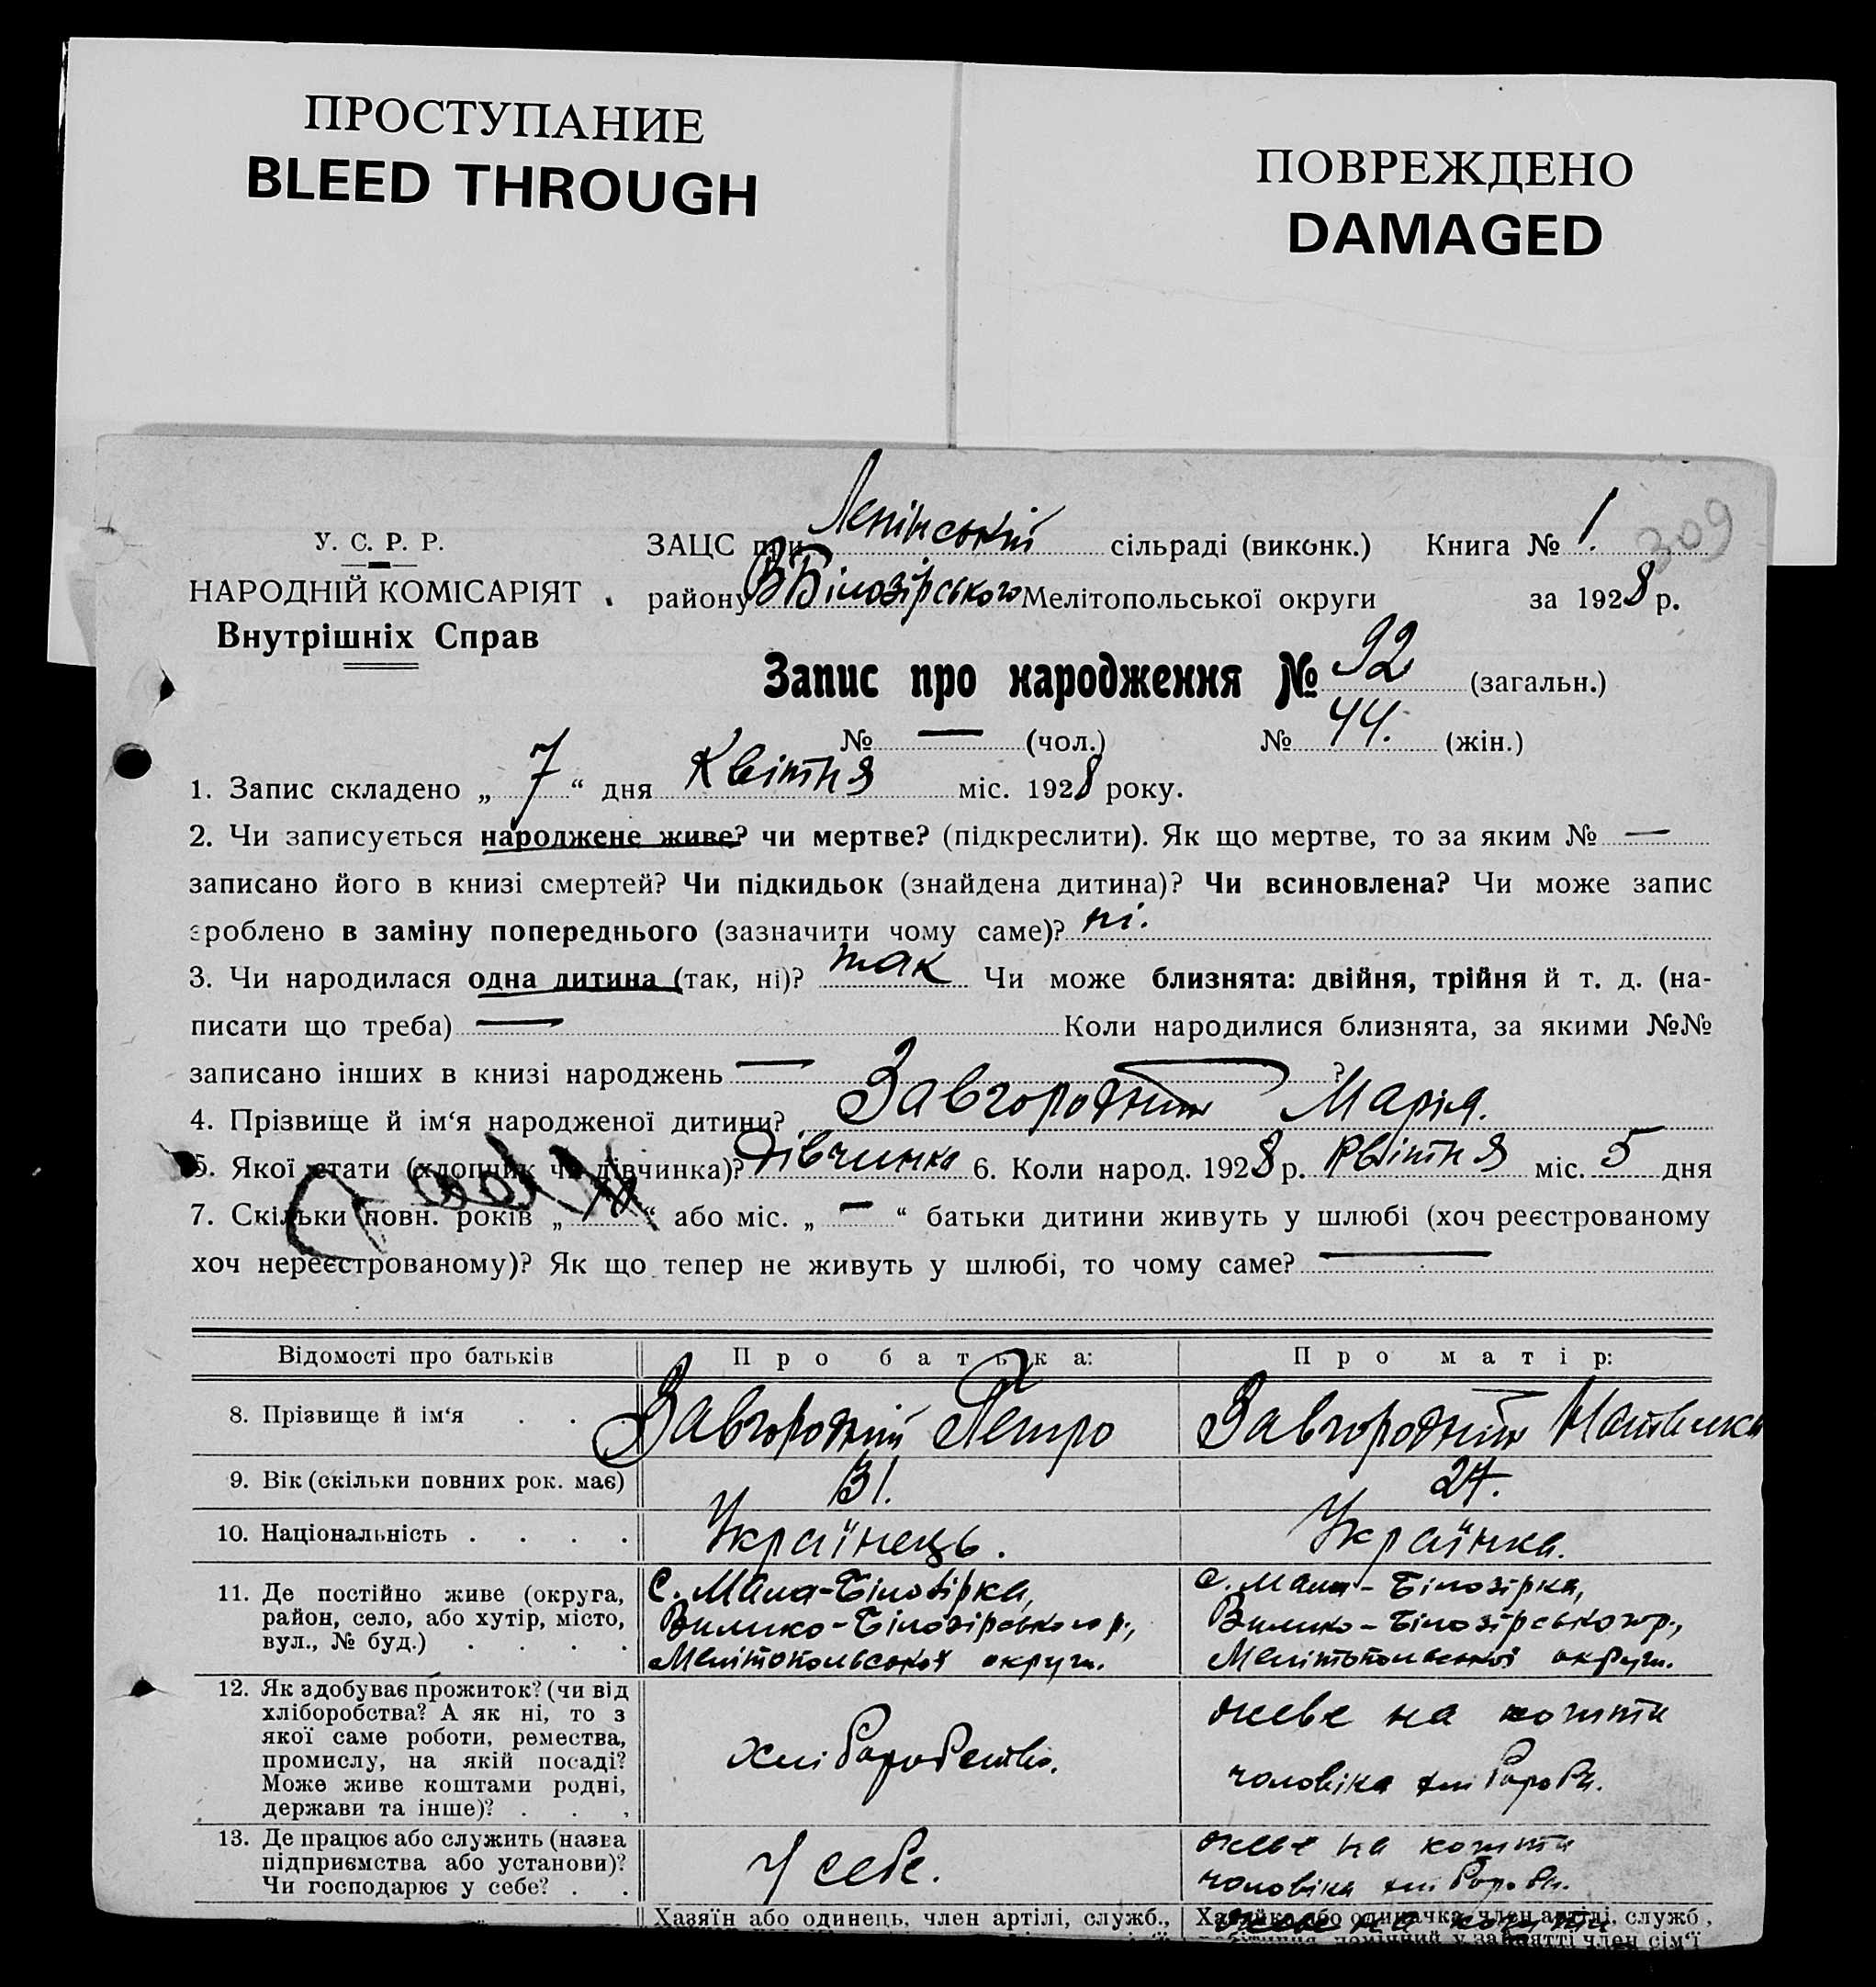 ПРОСТУПАНИЕ
BLEED THROUGH
ПОВРЕЖДЕНО
DAMAGED
309
У. С. Р. Р.
НАРОДНІЙ КОМІСАРІЯТ
Внутрішніх Справ
ЗАЦС при Ленінській сільраді (виконк.) Книга № 1.
району ВБілозірського Мелітопольської округи за 1928 р.
Запис про народження № 92 (загальн.)
№ — (чол.) № 44. (жін.)
1. Запис складено „ 7 “ дня Квітня міс. 1928 року.
2. Чи записується народжене живе? чи мертве? (підкреслити). Як що мертве, то за яким № —
записано його в книзі смертей? Чи підкидьок (знайдена дитина)? Чи всиновлена? Чи може запис
зроблено в заміну попереднього (зазначити чому саме)? ні.
3. Чи народилася одна дитина (так, ні)? так Чи може близнята: двійня, трійня й т. д. (на-
писати що треба) — Коли народилися близнята, за якими №№
записано інших в книзі народжень — ?
4. Прізвище й ім‘я народженої дитини? Марія.
5. Якої стати (хлопчик чи дівчинка)? Дівчинка 6. Коли народ. 1928 р. Квітня міс. 5 дня
7. Скільки повн. років „ “ або міс. „ — “ батьки дитини живуть у шлюбі (хоч реєстрованому
хоч нереєстрованому)? Як що тепер не живуть у шлюбі, то чому саме? —
Відомості про батьків Про батька: Про матір:
8. Прізвище й ім‘я . . Завгородній Петро
9. Вік (скільки повних рок. має) 31. 27.
10. Національність . . . . Українець. Українка.
11. Де постійно живе (округа,
район, село, або хутір, місто,
вул., № буд.) . . . .
с. Мала-Білозірка,
Велико-Білозірського р.,
Мелітопольської округи.
с. Мала-Білозірка,
Велико-Білозірського р.,
Мелітопольської округи.
12. Як здобуває прожиток? (чи від
хліборобства? А як ні, то з
якої саме роботи, ремества,
промислу, на якій посаді?
Може живе коштами родні,
держави та інше)? . . .
хліборобство.
живе на кошти
чоловіка хлібороба.
13. Де працює або служить (назва
підприємства або установи)?
Чи господарює у себе? . .
У себе.
живе на кошти
чоловіка хлібороба.
Хазяїн або одинець, член артілі, служб.,
Хазяйка або одиначка, член артілі, служб.,
живе на кошти